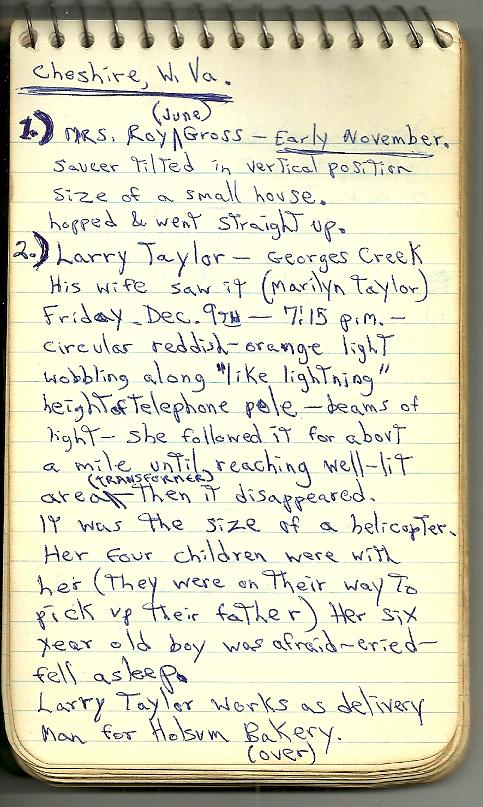 Cheshire, W. Va.
(June)
1.) MRS. Roy ∧ Gross – Early November.
saucer tilted in vertical position
size of a small house.
hopped & went straight up.
2.) Larry Taylor – Georges Creek
His wife saw it (Marilyn Taylor)
Friday. Dec. 9TH – 7:15 p.m. –
circular reddish-orange light
wobbling along "like lightning"
height of telephone pole – beams of
light – she followed it for about
a mile until reaching well-lit
(TRANSFORMER)
area ∧ – then it disappeared.
It was the size of a helicopter.
Her four children were with
her (they were on their way to
pick up their father) Her six
year old boy was afraid-cried-
fell asleep.
Larry Taylor works as delivery
man for Holsum Bakery.
(over)